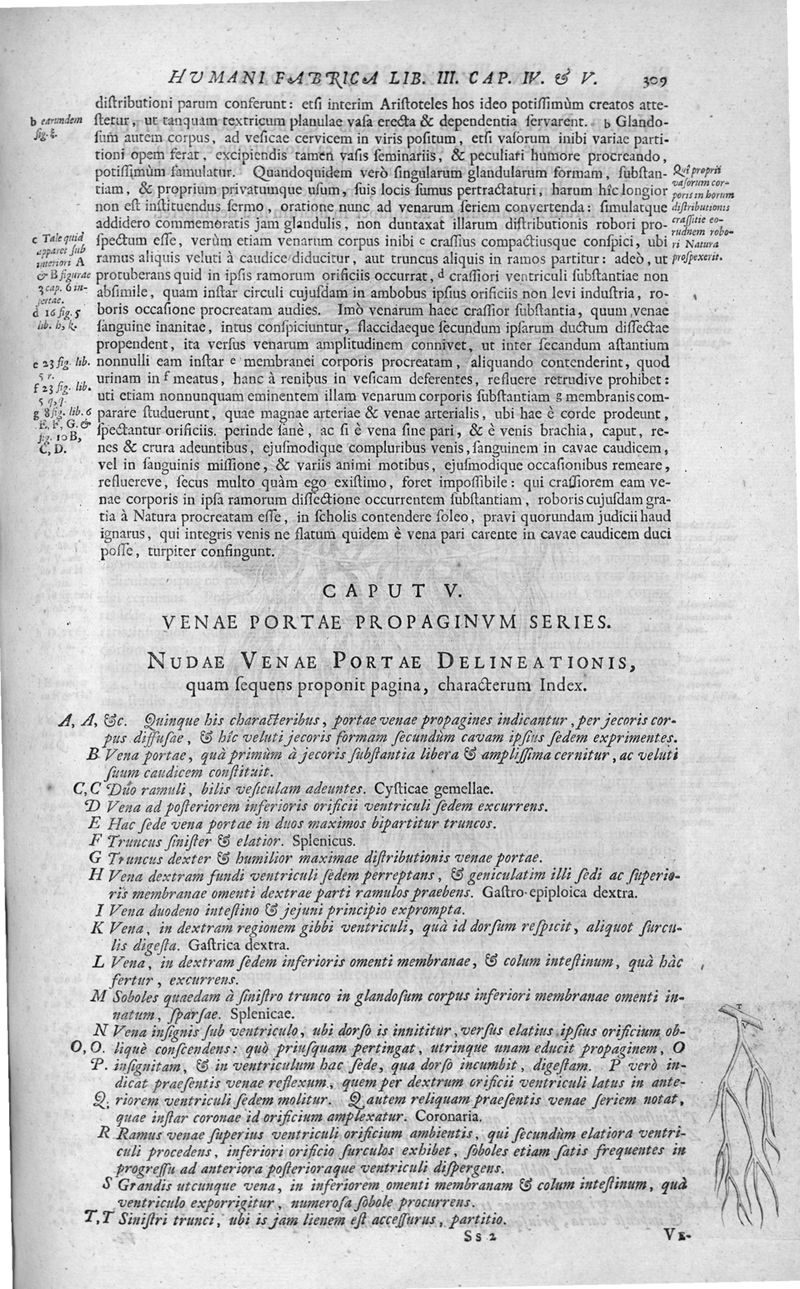 HUMANI FABRICA LIB. III. CAP. IV. & V. 309
diſtributioni parum conferunt: etſi interim Ariſtoteles hos ideo potiſſimùm creatos atte-
ſtetur, ut tanquam textricum planulae vaſa erecta & dependentia ſervarent. b Glando-
ſum autem corpus, ad veſicae cervicem in viris poſitum, etſi vaſorum inibi variae parti-
tioni opem ferat, excipiendis tamen vaſis ſeminariis, & peculiari humore procreando,
potiſſimùm famulatur. Quandoquidem verò ſingularum glandularum formam, ſubſtan-
tiam, & proprium privatumque uſum, ſuis locis ſumus pertractaturi, harum hîc longior
non eſt inſtituendus ſermo, oratione nunc ad venarum ſeriem convertenda: ſimulatque
addidero commemoratis jam glandulis, non duntaxat illarum diſtributionis robori pro-
ſpectum eſſe, verùm etiam venarum corpus inibi c craſſius compactiusque conſpici, ubi
ramus aliquis veluti à caudice diducitur, aut truncus aliquis in ramos partitur: adeò, ut
protuberans quid in ipſis ramorum orificiis occurrat, d craſſiori ventriculi ſubſtantiae non
abſimile, quam inſtar circuli cujuſdam in ambobus ipſius orificiis non levi induſtria, ro-
boris occaſione procreatam audies. Imò venarum haec craſſior ſubſtantia, quum venae
ſanguine inanitae, intus conſpiciuntur, flaccidaeque ſecundum ipſarum ductum diſſectae
propendent, ita verſus venarum amplitudinem connivet, ut inter ſecandum aſtantium
nonnulli eam inſtar e membranei corporis procreatam, aliquando contenderint, quod
urinam in f meatus, hanc à renibus in veſicam deferentes, refluere retrudive prohibet:
uti etiam nonnunquam eminentem illam venarum corporis ſubſtantiam g membranis com-
parare ſtuduerunt, quae magnae arteriae & venae arterialis, ubi hae è corde prodeunt,
ſpectantur orificiis. perinde ſanè, ac ſi è vena ſine pari, & è venis brachia, caput, re-
nes & crura adeuntibus, ejuſmodique compluribus venis, ſanguinem in cavae caudicem,
vel in ſanguinis miſſione, & variis animi motibus, ejuſmodique occaſionibus remeare,
refluereve, ſecus multo quàm ego exiſtimo, foret impoſſibile: qui craſſiorem eam ve-
nae corporis in ipſa ramorum diſſectione occurrentem ſubſtantiam, roboris cujuſdam gra-
tia à Natura procreatam eſſe, in ſcholis contendere ſoleo, pravi quorundam judicii haud
ignarus, qui integris venis ne flatum quidem è vena pari carente in cavae caudicem duci
poſſe, turpiter confingunt.
b earundem
fig.
c Tale quid
apparet ſub
interiori A
& B figurae
3 cap. 6 in-
sertae.
d 16 fig. 5
lib. h, k.
e 23 fig. lib.
5 r.
f 23 fig. lib.
5 q, q.
g 8 fig. lib. 6
E, F, G. &
fig. 10 B,
C, D.
Qui proprii
vaſorum cor-
poris in horum
diſtributionis
craſſitie eo-
rundem robo-
ri Natura
proſpexerit.
CAPUT V.
VENAE PORTAE PROPAGINVM SERIES.
NUDAE VENAE PORTAE DELINEATIONIS,
quam ſequens proponit pagina, characterum Index.
A, A, &c. Quinque his characteribus, portae venae propagines indicantur, per jecoris cor-
pus diffuſae, & hîc veluti jecoris formam ſecundùm cavam ipſius ſedem exprimentes.
B Vena portae, quà primùm à jecoris ſubſtantia libera & ampliſſima cernitur, ac veluti
ſuum caudicem conſtituit.
C, C Duo ramuli, bilis veſiculam adeuntes. Cyſticae gemellae.
D Vena ad poſteriorem inferioris orificii ventriculi ſedem excurrens.
E Hac ſede vena portae in duos maximos bipartitur truncos.
F Truncus ſiniſter & elatior. Splenicus.
G Truncus dexter & humilior maximae diſtributionis venae portae.
H Vena dextram fundi ventriculi ſedem perreptans, & geniculatim illi ſedi ac ſuperio-
ris membranae omenti dextrae parti ramulos praebens. Gaſtro-epiploica dextra.
I Vena duodeno inteſtino & jejuni principio exprompta.
K Vena, in dextram regionem gibbi ventriculi, quà id dorſum reſpicit, aliquot ſurcu-
lis digeſta. Gaſtrica dextra.
L Vena, in dextram ſedem inferioris omenti membranae, & colum inteſtinum, quà hàc
fertur, excurrens.
M Soboles quaedam à ſiniſtro trunco in glandoſum corpus inferiori membranae omenti in-
natum, ſparſae. Splenicae.
N Vena inſignis ſub ventriculo, ubi dorſo is innititur, verſus elatius ipſius orificium ob-
O, O. liquè conſcendens: quò priuſquam pertingat, utrinque unam educit propaginem, O
P. inſignitam, & in ventriculum hac ſede, qua dorſo incumbit, digeſtam. P verò in-
dicat praeſentis venae reflexum, quem per dextrum orificii ventriculi latus in ante-
Q. riorem ventriculi ſedem molitur. Q autem reliquam praeſentis venae ſeriem notat,
quae inſtar coronae id orificium amplexatur. Coronaria.
R Ramus venae ſuperius ventriculi orificium ambientis, qui ſecundùm elatiora ventri-
culi procedens, inferiori orificio ſurculos exhibet, ſoboles etiam ſatis frequentes in
progreſſu ad anteriora poſterioraque ventriculi diſpergens.
S Grandis utcunque vena, in inferiorem omenti membranam & colum inteſtinum, quà
ventriculo exporrigitur, numeroſa ſobole procurrens.
T, T Siniſtri trunci, ubi is jam lienem eſt acceſſurus, partitio.
Ss 2 VE-